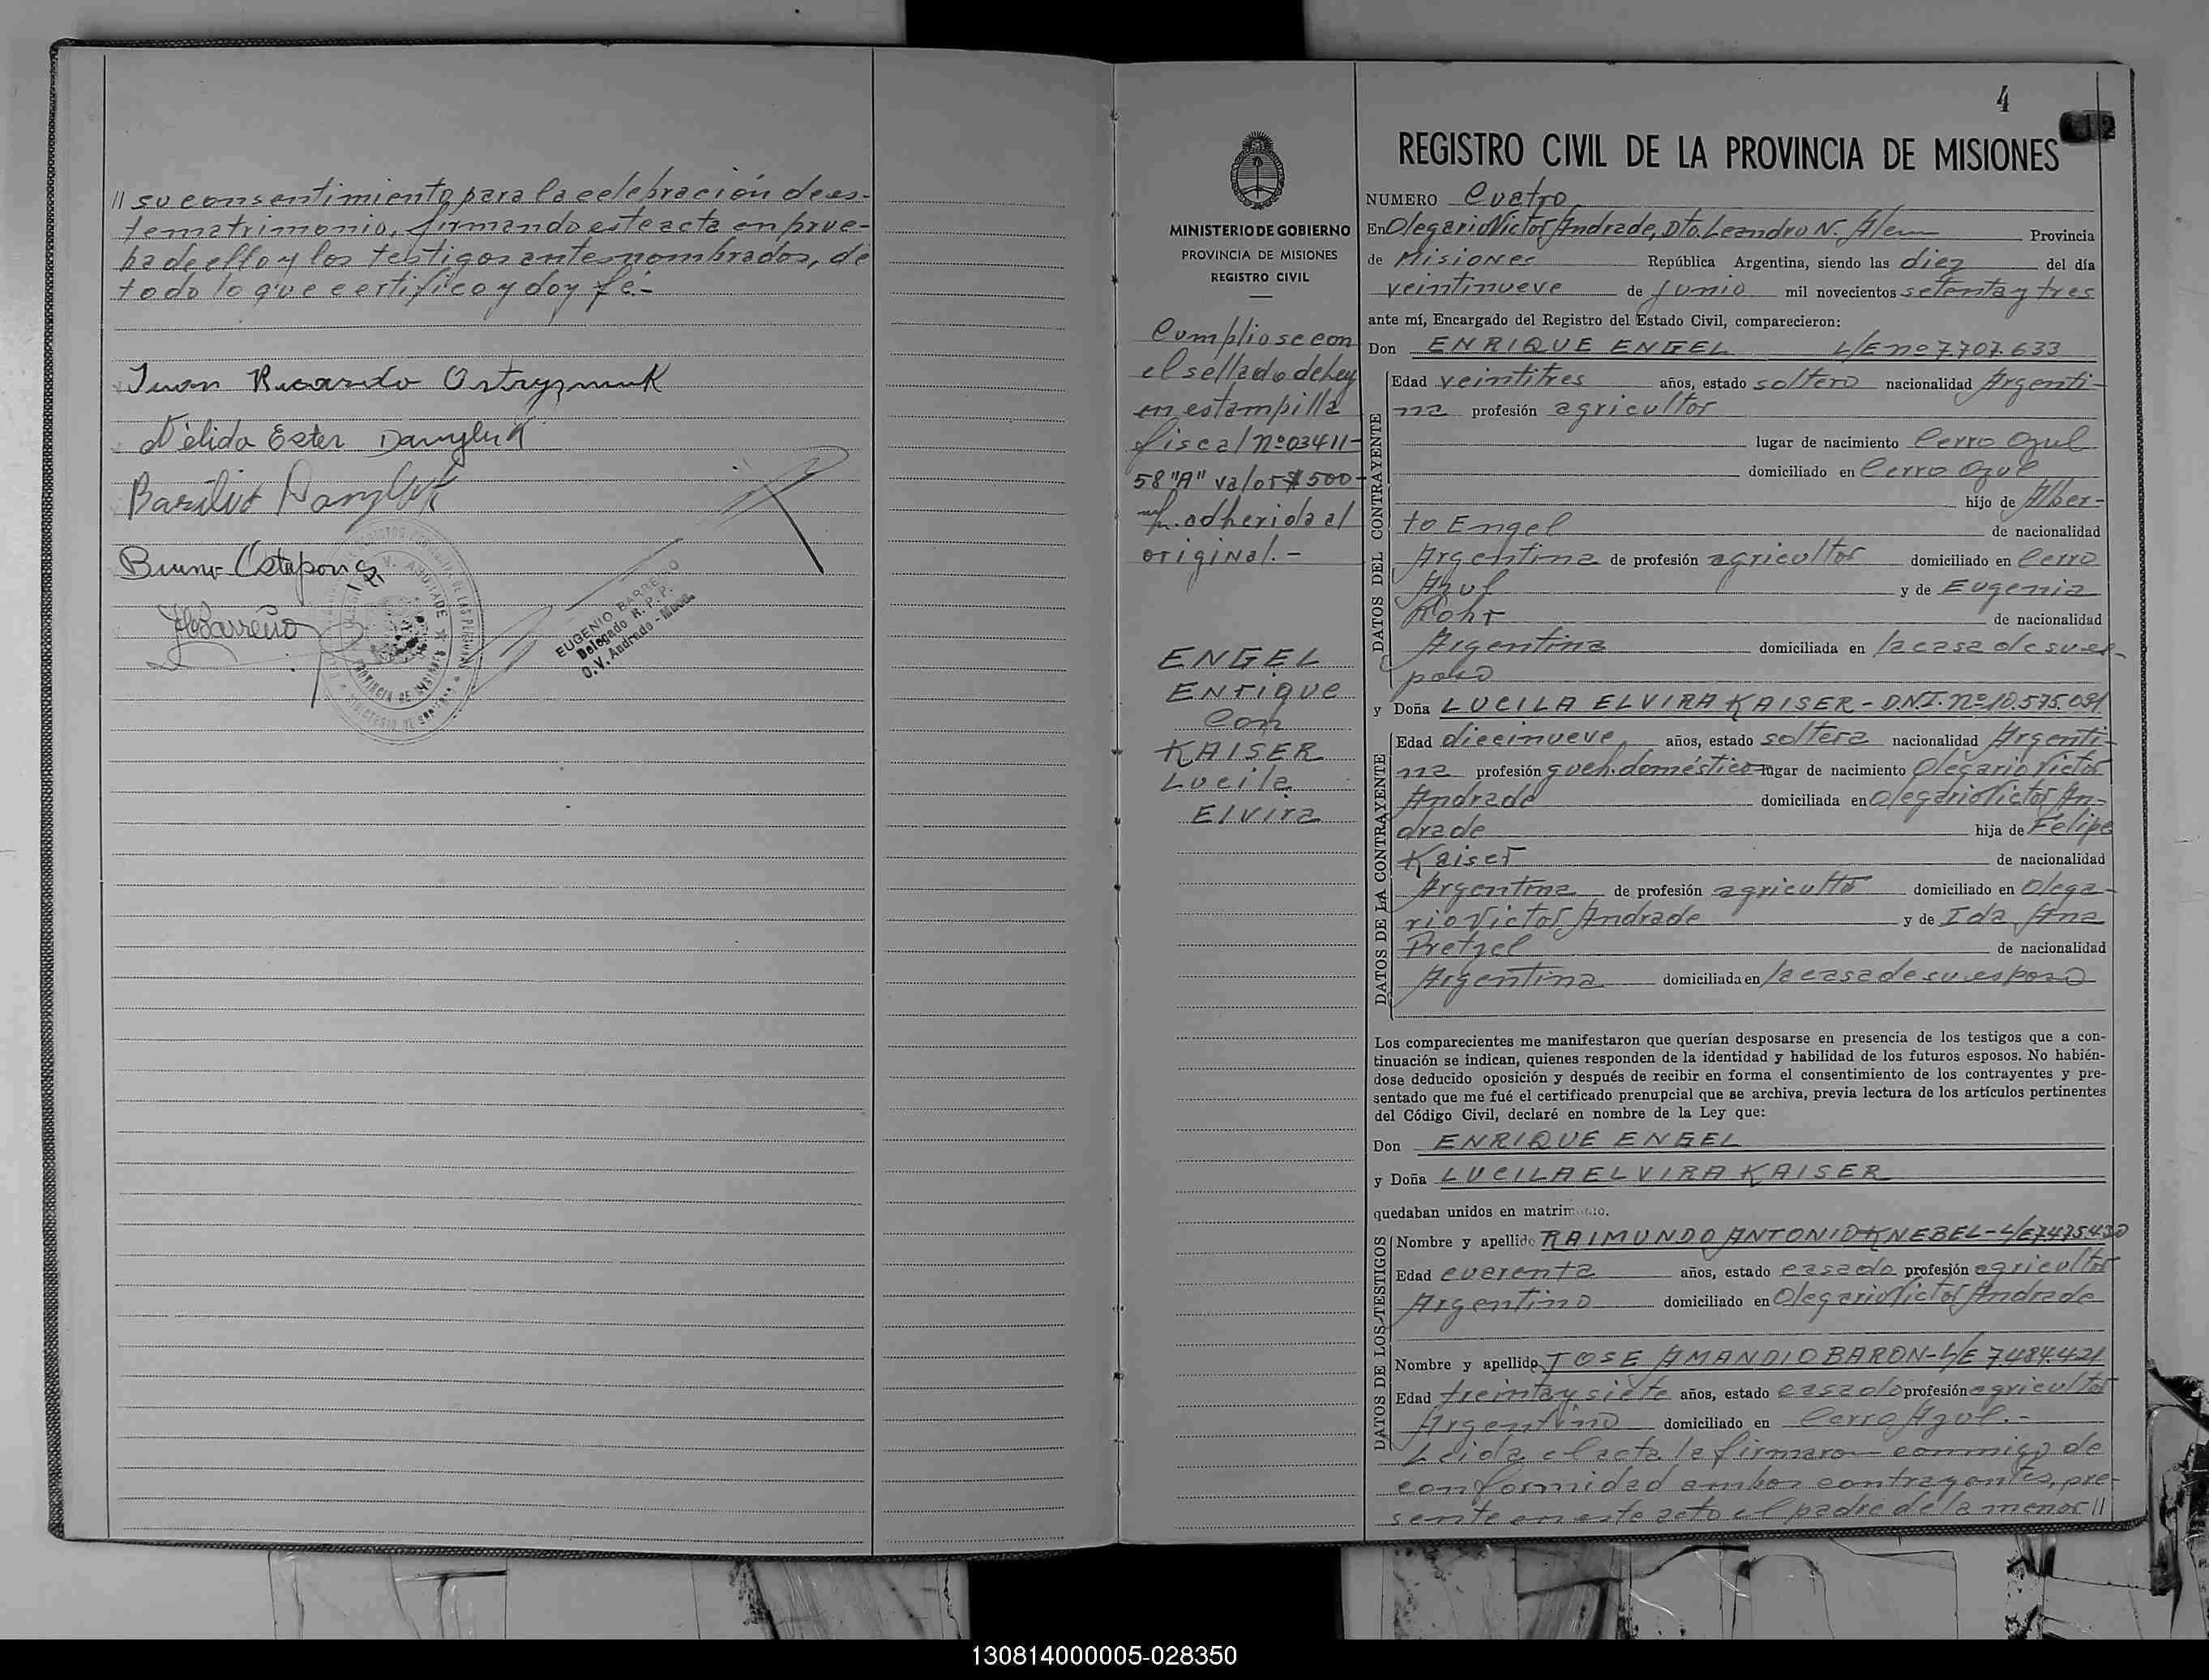 // su consentimiento para la celebración de es-
te matrimonio, firmando este acta en prue-
ba de ello y los testigos antes nombrados, de
todo lo que certifico y doy fé.-
Juan Ricardo Ostryzniuk
Nélida Ester Danyluk
Basilio Danyluk
Bruno Ostapow
HBarreiro
EUGENIO BARREIRO
Delegado R. P. P.
O. V. Andrade - Mnes.
4
REGISTRO CIVIL DE LA PROVINCIA DE MISIONES
MINISTERIO DE GOBIERNO
PROVINCIA DE MISIONES
REGISTRO CIVIL
Cumpliose con
el sellado de Ley
en estampilla
fiscal nº 03411-
58 "A" valor $ 500-
m/n. adherida al
original.-
ENGEL
Enrique
Con
KAISER
Lucila
Elvira
NUMERO Cuatro
En Olegario Victor Andrade, Dto. Leandro N. Alem Provincia
de Misiones República Argentina, siendo las diez del día
veintinueve de Junio mil novecientos setenta y tres
ante mí, Encargado del Registro del Estado Civil, comparecieron:
Don ENRIQUE ENGEL L/E nº 7.707.633
DATOS DEL CONTRAYENTE
Edad veintitres años, estado soltero nacionalidad Argenti-
na profesión agricultor
lugar de nacimiento Cerro Azul
domiciliado en Cerro Azul
hijo de Alber-
to Engel de nacionalidad
Argentina de profesión agricultor domiciliado en Cerro
Azul y de Eugenia
Rohr de nacionalidad
Argentina domiciliada en la casa de su es-
poso
y Doña LUCILA ELVIRA KAISER - D.N.I. nº 10.575.091
DATOS DE LA CONTRAYENTE
Edad diecinueve años, estado soltera nacionalidad Argenti-
na profesión queh. doméstico lugar de nacimiento Olegario Victor
Andrade domiciliada en Olegario Victor An-
drade hija de Felipe
Kaiser de nacionalidad
Argentina de profesión agricultor domiciliado en Olega-
rio Victor Andrade y de Ida Ana
Pretzel de nacionalidad
Argentina domiciliada en la casa de su esposo
Los comparecientes me manifestaron que querían desposarse en presencia de los testigos que a con-
tinuación se indican, quienes responden de la identidad y habilidad de los futuros esposos. No habién-
dose deducido oposición y después de recibir en forma el consentimiento de los contrayentes y pre-
sentado que me fué el certificado prenupcial que se archiva, previa lectura de los artículos pertinentes
del Código Civil, declaré en nombre de la Ley que:
Don ENRIQUE ENGEL
y Doña LUCILA ELVIRA KAISER
quedaban unidos en matrimonio.
DATOS DE LOS TESTIGOS
Nombre y apellido RAIMUNDO ANTONIO KNEBEL - L/E 7.475.430
Edad cuarenta años, estado casado profesión agricultor
Argentino domiciliado en Olegario Victor Andrade
Nombre y apellido JOSE AMANDIO BARON - L/E 7.484.421
Edad treinta y siete años, estado casado profesión agricultor
Argentino domiciliado en Cerro Azul.-
Leida el acta la firmaron conmigo de
conformidad ambos contrayentes, pre-
sente en este acto el padre de la menor //
130814000005-028350